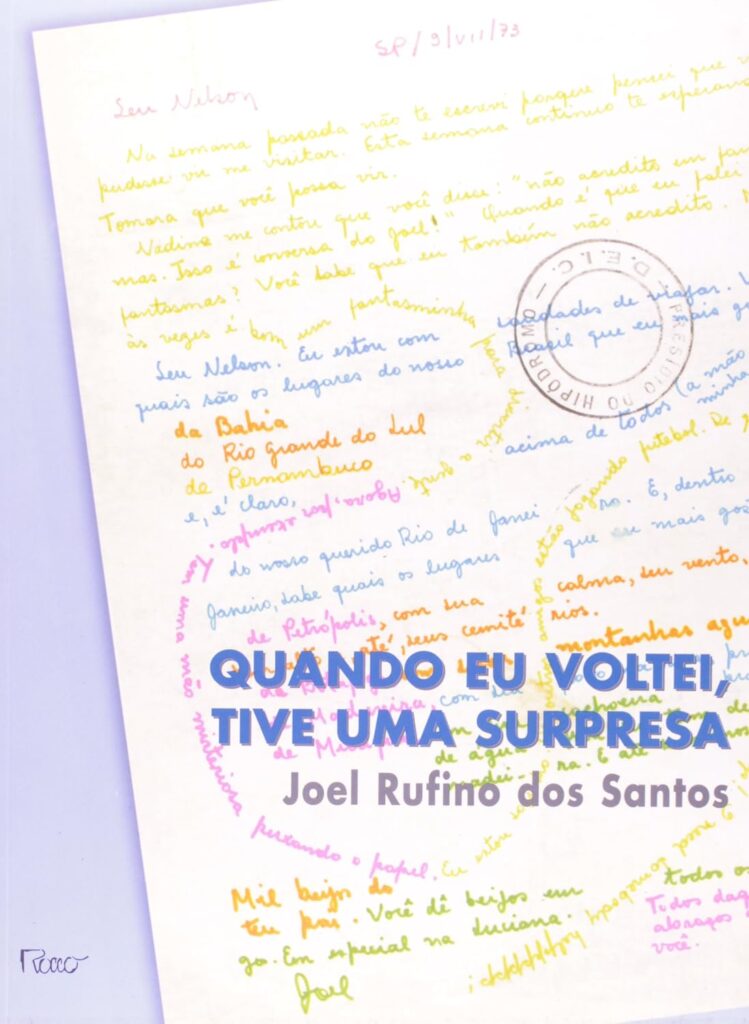 SP/9/VII/73
Seu Nelson
Na semana passada não te escrevi porque pensei que v
pudesse vir me visitar. Esta semana continuo te esperand
Tomara que você possa vir.
Nadine me contou que você disse: "não acredito em fan
mas. Isso é conversa do Joel!" Quando é que eu falei
fantasmas? Você sabe que eu também não acredito.
às vezes é bom um fantasminha para
Seu Nelson. Eu estou com saudades de viajar. V
quais são os lugares do nosso Brasil que eu mais go
da Bahia
do Rio Grande do Sul
de Pernambuco
acima de todos (a mão
minha
e, é claro,
Agora, por exemplo,
Tem uma mão misteriosa puxando o papel.
estão jogando futebol. De
do nosso querido Rio de Janei ro. E, dentro
Janeiro, sabe quais os lugares que eu mais gos
de Petrópolis, com sua calma, seu vento,
até, seus cemité rios.
montanhas agu
de Madureira, com
cachoeira
de água
ra. E até
PRESÍDIO DO HIPÓDROMO — D.E.I.C. —
QUANDO EU VOLTEI,
TIVE UMA SURPRESA
Joel Rufino dos Santos
Eu estou
Mil beijos do
teu pai. Você dê beijos em
go. Em especial na Luciana.
Joel
todos os
Todos daq
abraços
você.
Rocco